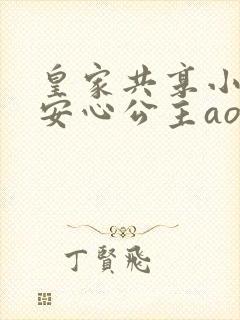 皇家共享小
安心公主ao
丁賢飛